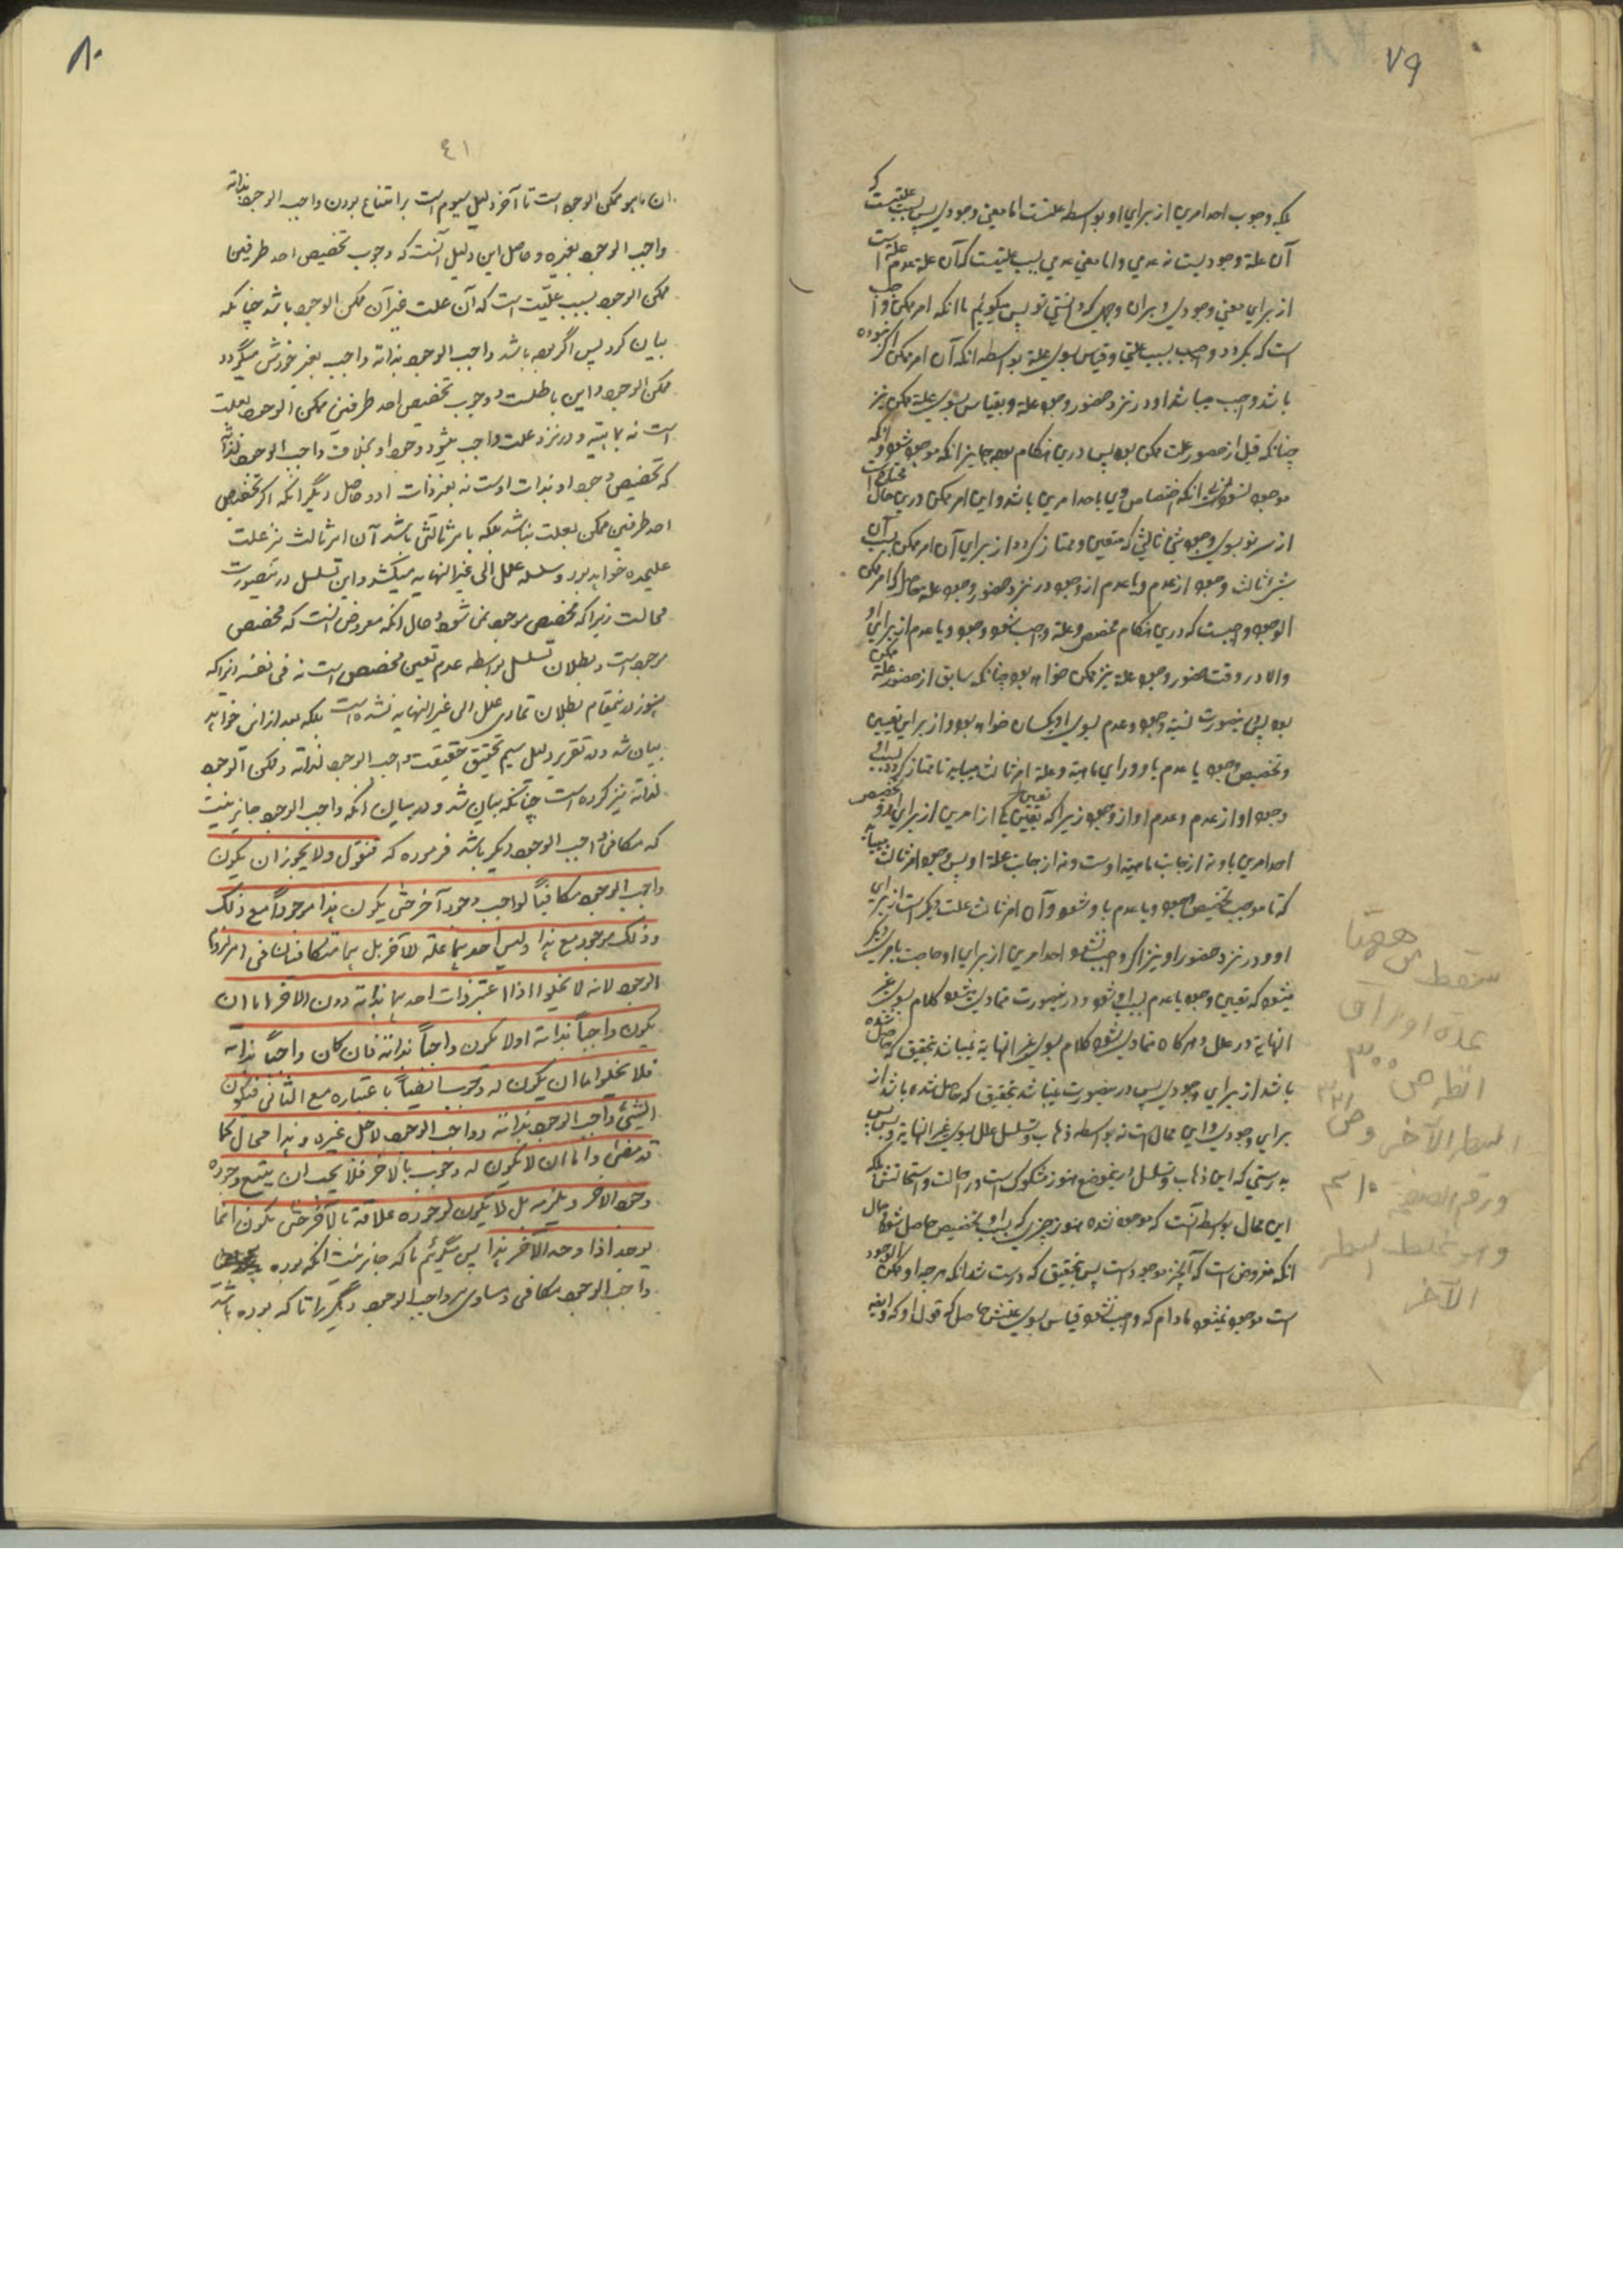 ٧٩
بلکه وجوب احد امرین از برای او بواسطه علتست اما معنی وجودی پس بسبب علتیست که
آن علة وجودیست نه عدمی و اما معنی عدمی بسبب علتیست که آن علة عدم علة است
از برای معنی وجودی بر آن وجهی که دانستی تو پس میگوئیم ما انکه امر ممکن واجب
است که بگردد واجب بسبب علتی و قیاس بسوی علة بواسطه انکه آن امر ممکن اگر نبوده
باشد واجب میباشد او در نزد حضور وجود علة و بقیاس بسوی علة ممکن نیز
چنانکه قبل از حضور علت ممکن بود پس درین هنگام بود جایز انکه موجود شود و انکه
موجود نشود انکه اختصاص وی باحد امرین باشد و این امر ممکن درین حال محتاج است
از سر نو بسوی وجود شیئ ثالثی که متعین و ممتاز گردد از برای آن امر ممکن بسبب آن
شیئ ثالث وجود از عدم و یا عدم از وجود در نزد حضور وجود علة حاصل که امر ممکن
الوجود واجبست که درین هنگام مخصص و علة واجب شود وجود و یا عدم از برای او
والا در وقت حضور وجود علة نیز ممکن خواهد بود چنانکه سابق از حضور علة ممکن
بود پس درینصورت نسبة وجود و عدم بسوی او یکسان خواهد بود و از برای تعیین
و تخصیص وجود یا عدم باو ورای ماهیة و علة امر ثالث میباید تا ممتاز گردد بسبب او
وجود او از عدم و عدم او از وجود زیرا که تعیین یکی از امرین از برای او و تخصیص
احد امرین باو نه از جانب ماهیة اوست و نه از جانب علة او پس وجود امر ثالث میباید
که تا موجب تخصیص وجود و یا عدم باو شود و آن امر ثالث علت دیگر است از برای
او و در نزد حضور او نیز اگر واجب نشود احد امرین از برای او حاجت بامر دیگر
میشود که تعیین وجود یا عدم بسبب او شود و درینصورت متمادی میشود کلام بسوی غیر
النهایة در علل و هرگاه متمادی شود کلام بسوی غیر النهایة نمیباشد بتحقیق که حاصل شده
باشد از برای وجودی پس درینصورت نمیباشد بتحقیق که حاصل شده باشد از
برای وجودی و این محال است نه بواسطه ذهاب و تسلسل علل بسوی غیر النهایة و بس پس
بدرستی که این ذهاب و تسلسل درین موضع هنوز مشکوکست در احالت و استحالتش بلکه
این محال بواسطه آنست که موجود نشده هنوز چیزی که بسبب او تخصیص حاصل شود و حال
انکه مفروض است که آنچیز موجود است پس بتحقیق که درست شد انکه هرچه او ممکن الوجود
است موجود نمیشود مادام که واجب نشود قیاس بسوی علتش حاصل که قول او که و ایضا
سقط من ههنا
عدة اوراق
انظر ص ٣٠٠
السطر الآخر وص ٣٣١
ورقم الصفحة
وهو السطر
الآخر
٨٠
٤١
ان ما هو ممکن الوجود است تا آخر دلیل سیوم است بر امتناع بودن واجب الوجود بذاته
واجب الوجود بغیره و حاصل این دلیل آنست که وجوب تخصیص احد طرفین
ممکن الوجود بسبب علتیست که آن علت غیر آن ممکن الوجود باشد چنانکه
بیان کرد پس اگر بوده باشد واجب الوجود بذاته واجب بغیر خودش میگردد
ممکن الوجود و این باطلست و وجوب تخصیص احد طرفین ممکن الوجود بعلت
است نه بماهیته و در نزد علت واجب میشود وجود او بخلاف واجب الوجود لذاته
که تخصیص وجود او بذات اوست نه بغیر ذات او و حاصل دیگر انکه اگر تخصیص
احد طرفین ممکن بعلت نباشد بلکه بامر ثالثی باشد آن امر ثالث نیز علت
علیحده خواهد بود و سلسله علل الی غیر النهایه میکشد و این تسلسل درینصورت
محالست زیرا که مخصص موجود نمیشود و حال انکه مفروض انست که مخصص
موجود است و بطلان تسلسل بواسطه عدم تعین مخصص است نه فی نفسه زیرا که
هنوز درینمقام بطلان تمادی علل الی غیر النهایه نشده است بلکه بعد از این خواهد
بیان شد و در تقریر دلیل سیم تحقیق حقیقت واجب الوجود لذاته و ممکن الوجود
لذاته نیز کرده است چنانکه بیان شد و در بیان انکه واجب الوجود جایز نیست
که مکافی واجب الوجود دیگر باشد فرموده که فنقول ولا یجوز ان یکون
واجب الوجود مکافیاً لواجب وجود آخر حتی یکون هذا موجوداً مع ذلک
وذلک موجود مع هذا ولیس احدهما علة للآخر بل هما متکافئان فی امر لزوم
الوجود لانه لا یخلوا اذا اعتبر ذات احدهما بذاته دون الآخر اما ان
یکون واجباً بذاته اولا یکون واجباً بذاته فان کان واجباً بذاته
فلا یخلوا اما ان یکون له وجوب ایضاً باعتباره مع الثانی فیکون
الشیئ واجب الوجود بذاته وواجب الوجود لاجل غیره وهذا محال کما
قد مضی واما ان لا یکون له وجوب بالآخر فلا یجب ان یتبع وجوده
وجود الآخر ویلزمه بل لا یکون لوجوده علاقة بالآخر حتی یکون انما
یوجد اذا وجد الآخر هذا پس میگوئیم ما که جایز نیست انکه بوده
واجب الوجود مکافی و مساوی مر واجب الوجود دیگر را تا که بوده باشد